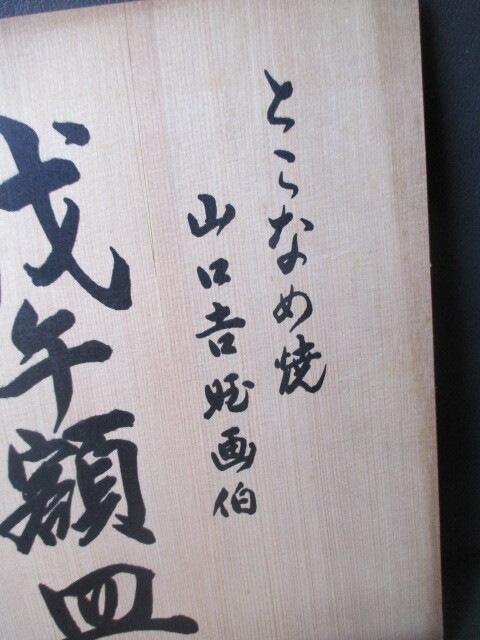 とこなめ焼
山口吉旺画伯
戊午額皿